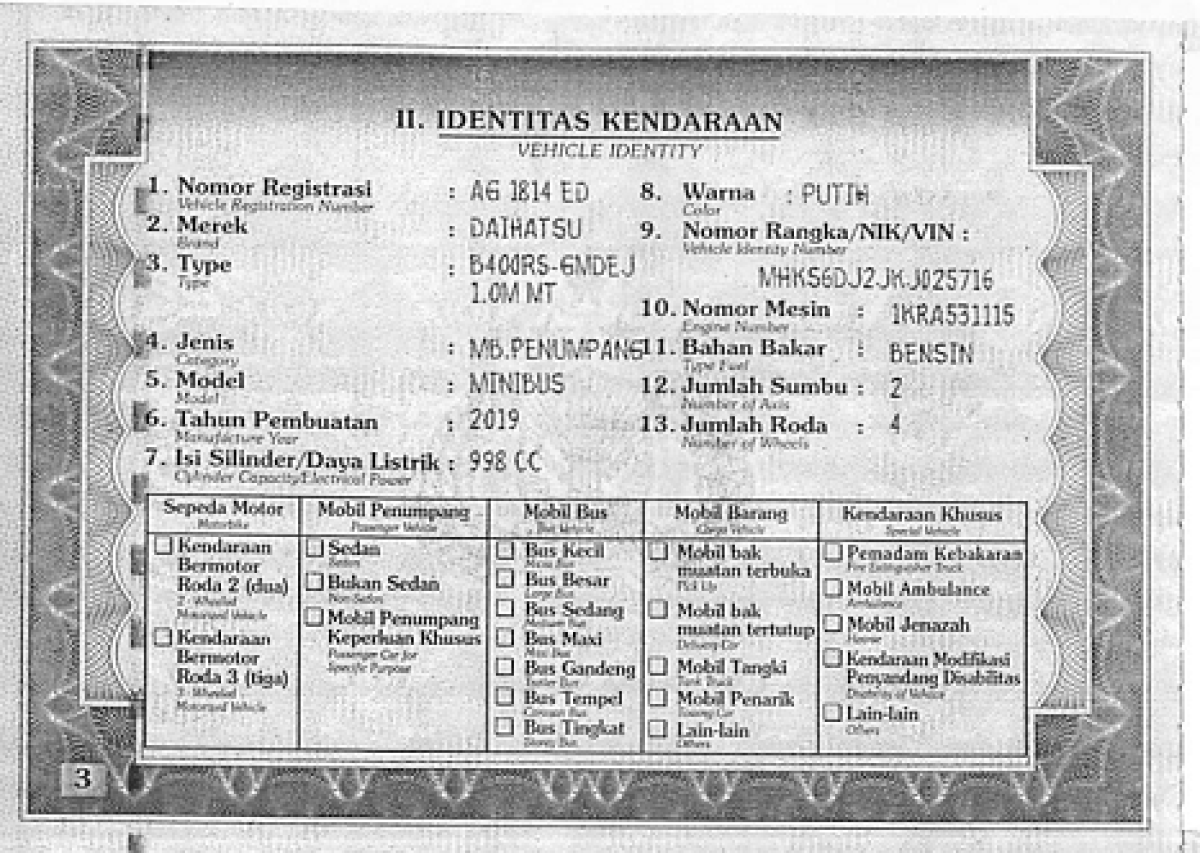 II. IDENTITAS KENDARAAN
VEHICLE IDENTITY
1. Nomor Registrasi : AG 1814 ED
Vehicle Registration Number
2. Merek : DAIHATSU
Brand
3. Type : B400RS-GMDEJ
Type
1.0M MT
4. Jenis : MB.PENUMPANG
Category
5. Model : MINIBUS
Model
6. Tahun Pembuatan : 2019
Manufacture Year
7. Isi Silinder/Daya Listrik : 998 CC
Cylinder Capacity/Electrical Power
8. Warna : PUTIH
Color
9. Nomor Rangka/NIK/VIN :
Vehicle Identity Number
MHKS6DJ2JKJ025716
10. Nomor Mesin : 1KRA531115
Engine Number
11. Bahan Bakar : BENSIN
Type Fuel
12. Jumlah Sumbu : 2
Number of Axis
13. Jumlah Roda : 4
Number of Wheels
Sepeda Motor
Motorbike
Kendaraan
Bermotor
Roda 2 (dua)
2 - Wheeled
Motorized Vehicle
Kendaraan
Bermotor
Roda 3 (tiga)
3 - Wheeled
Motorized Vehicle
Mobil Penumpang
Passenger Vehicle
Sedan
Sedan
Bukan Sedan
Non-Sedan
Mobil Penumpang
Keperluan Khusus
Passenger Car for
Specific Purpose
Mobil Bus
Bus Vehicle
Bus Kecil
Micro Bus
Bus Besar
Large Bus
Bus Sedang
Medium Bus
Bus Maxi
Maxi Bus
Bus Gandeng
Bus
Bus Tempel
Bus
Bus Tingkat
Bus
Mobil Barang
Cargo Vehicle
Mobil bak
muatan terbuka
Pick Up
Mobil bak
muatan tertutup
Delivery Car
Mobil Tangki
Tank Truck
Mobil Penarik
Towing Car
Lain-lain
Others
Kendaraan Khusus
Special Vehicle
Pemadam Kebakaran
Fire Extinguisher Truck
Mobil Ambulance
Ambulance
Mobil Jenazah
Hearse
Kendaraan Modifikasi
Penyandang Disabilitas
Disability of Vehicle
Lain-lain
Others
3